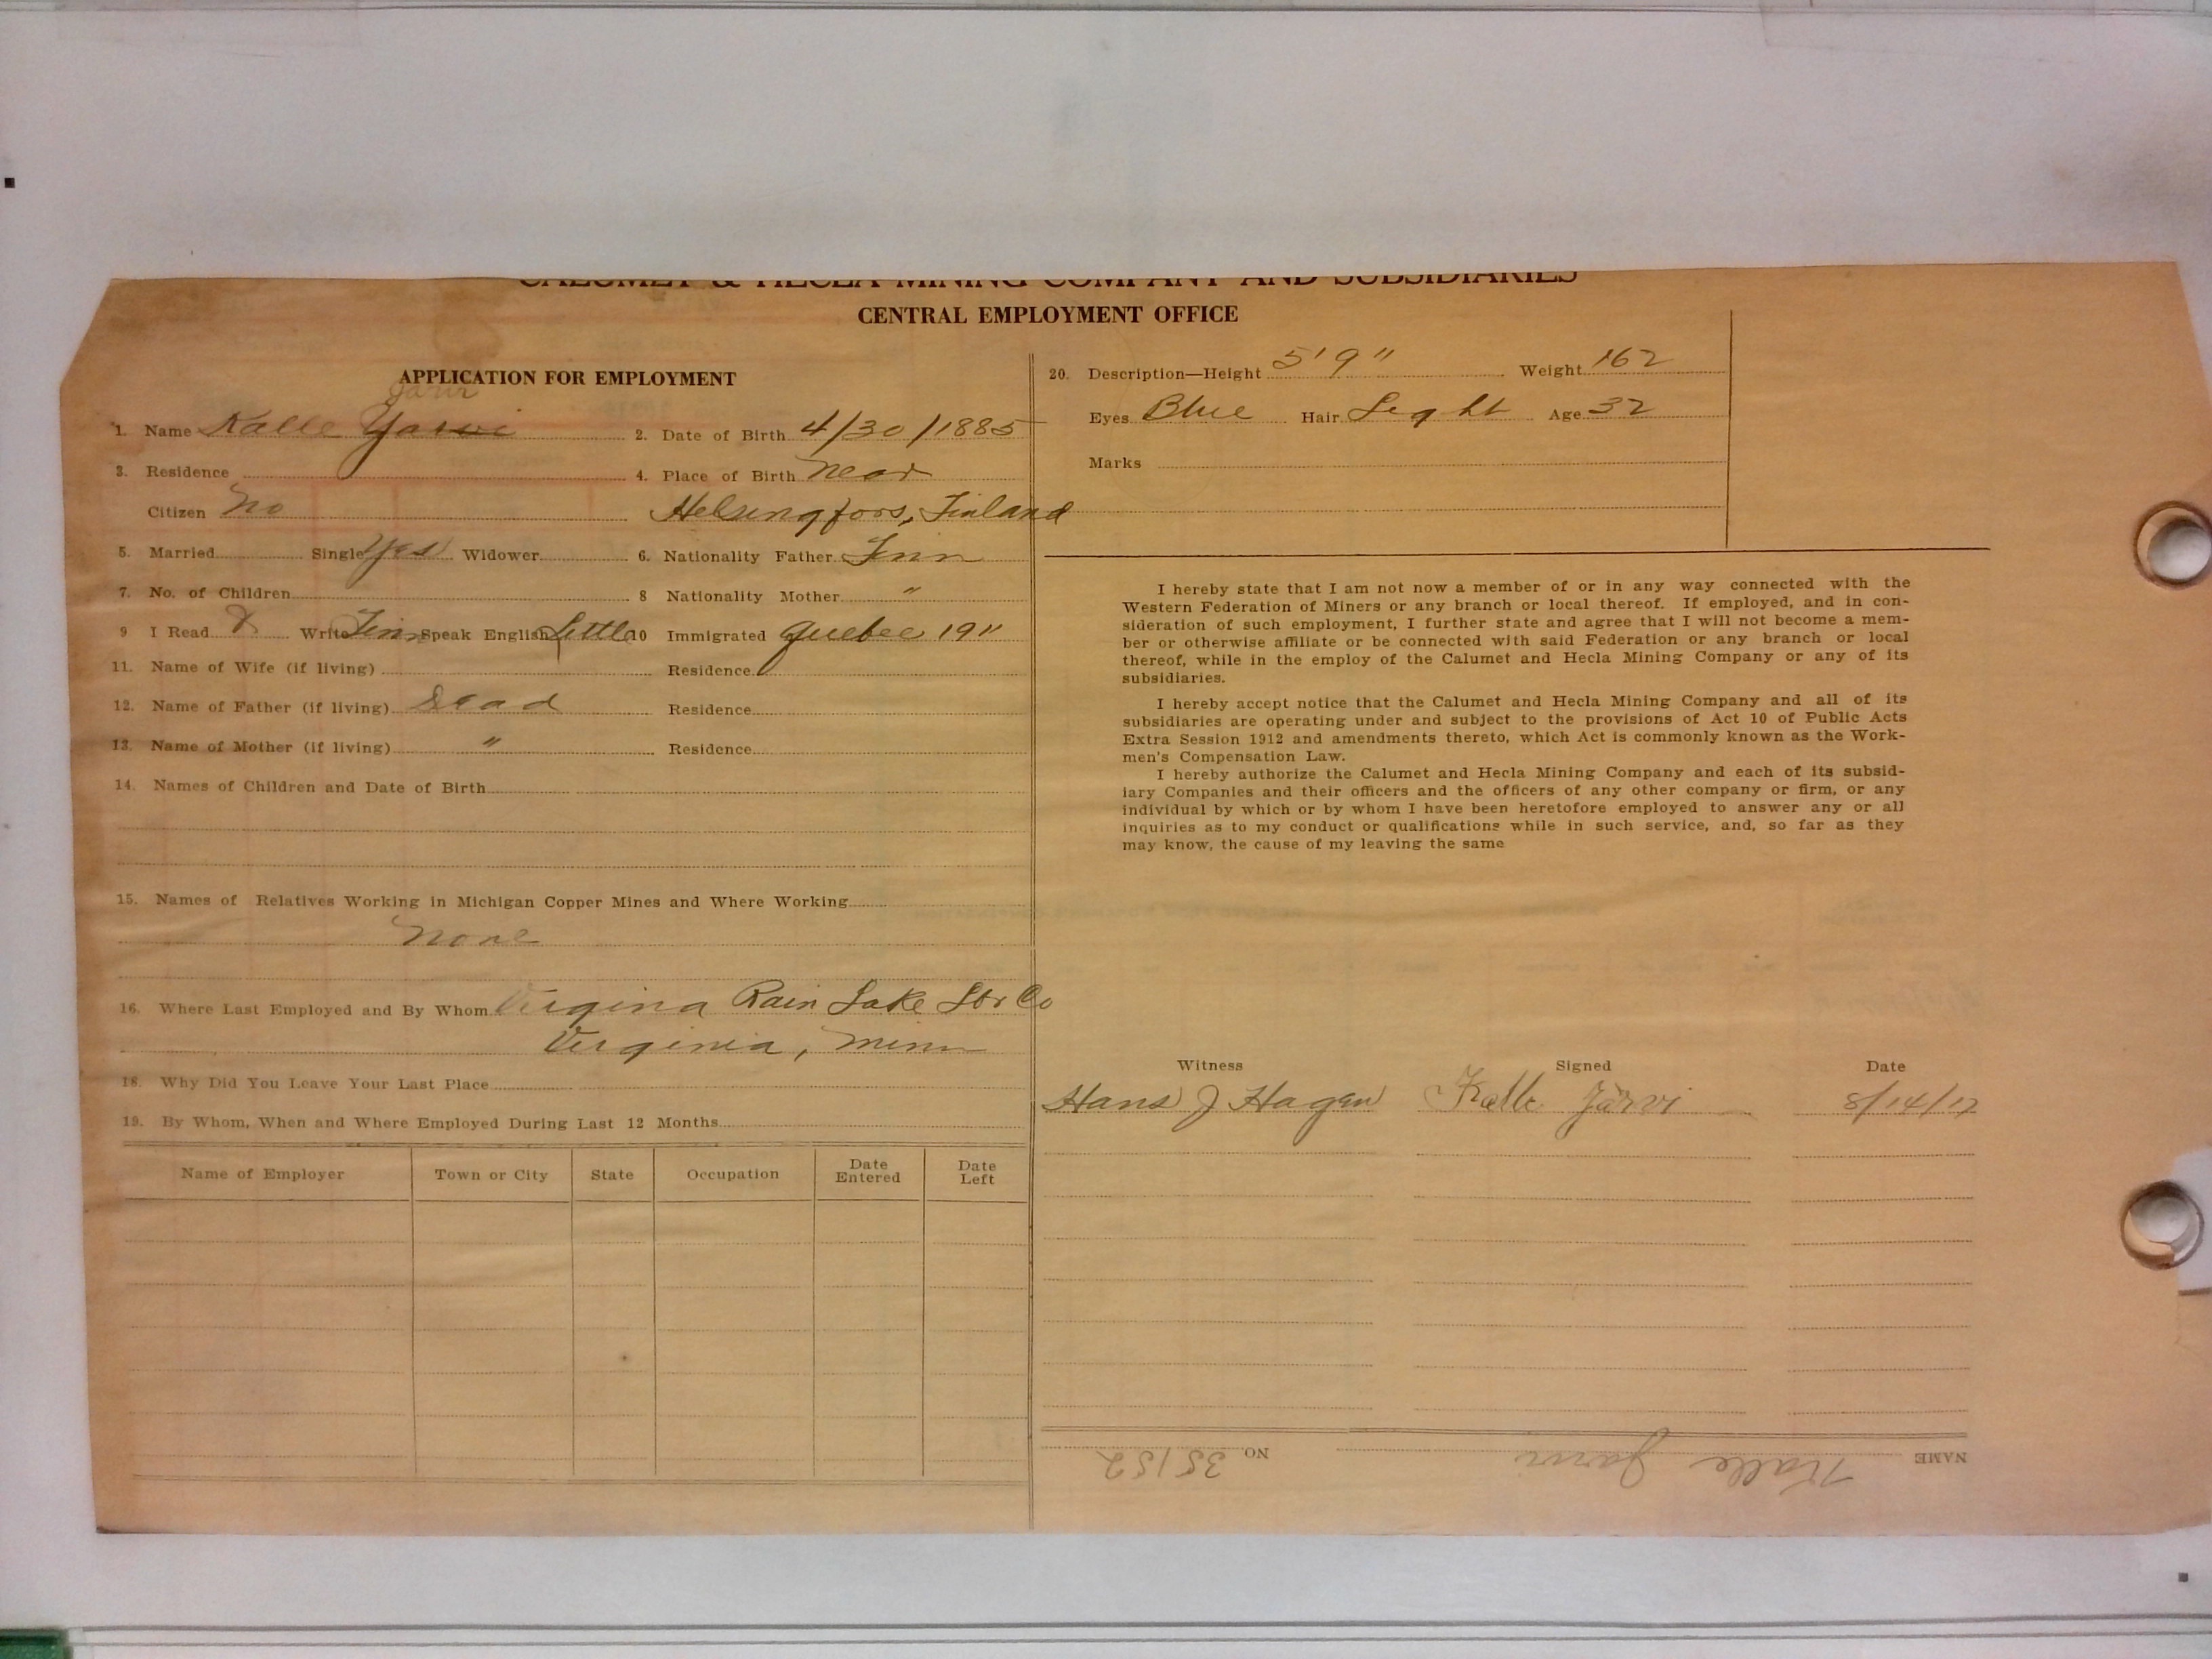 CALUMET & HECLA MINING COMPANY AND SUBSIDIARIES
CENTRAL EMPLOYMENT OFFICE
APPLICATION FOR EMPLOYMENT
Jarvi
1. Name Kalle Yarvi 2. Date of Birth 4/30/1885
3. Residence 4. Place of Birth near
Citizen No Helsingfors, Finland
5. Married Single Yes Widower 6. Nationality Father Finn
7. No. of Children 8 Nationality Mother "
9 I Read X Write Finn Speak English Little 10 Immigrated Quebec 1911
11. Name of Wife (if living) Residence
12. Name of Father (if living) Dead Residence
13. Name of Mother (if living) " Residence
14. Names of Children and Date of Birth
15. Names of Relatives Working in Michigan Copper Mines and Where Working
None
16. Where Last Employed and By Whom Virgina Rain Lake Lbr Co
Virginia, Minn
18. Why Did You Leave Your Last Place
19. By Whom, When and Where Employed During Last 12 Months
Name of Employer Town or City State Occupation Date Entered Date Left
20. Description—Height 5' 9" Weight 162
Eyes Blue Hair Light Age 32
Marks
I hereby state that I am not now a member of or in any way connected with the
Western Federation of Miners or any branch or local thereof. If employed, and in con-
sideration of such employment, I further state and agree that I will not become a mem-
ber or otherwise affiliate or be connected with said Federation or any branch or local
thereof, while in the employ of the Calumet and Hecla Mining Company or any of its
subsidiaries.
I hereby accept notice that the Calumet and Hecla Mining Company and all of its
subsidiaries are operating under and subject to the provisions of Act 10 of Public Acts
Extra Session 1912 and amendments thereto, which Act is commonly known as the Work-
men's Compensation Law.
I hereby authorize the Calumet and Hecla Mining Company and each of its subsid-
iary Companies and their officers and the officers of any other company or firm, or any
individual by which or by whom I have been heretofore employed to answer any or all
inquiries as to my conduct or qualifications while in such service, and, so far as they
may know, the cause of my leaving the same
Witness Signed Date
Hans J Hagen Kalle Järvi 8/14/17
NAME Kalle Jarvi NO 35152